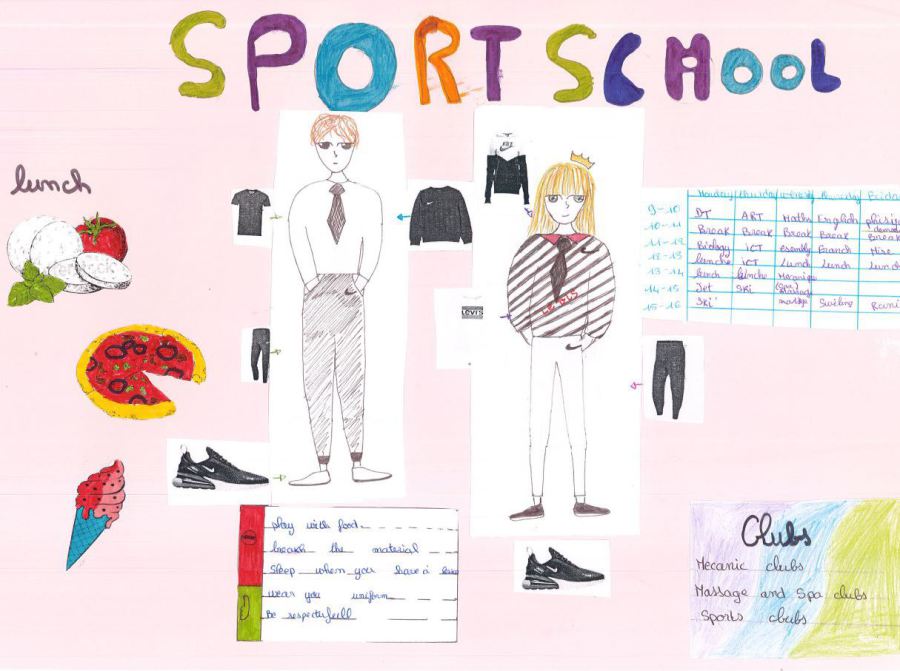 SPORT SCHOOL
lunch
NIKE
LEVI'S
LEVIS
Monday thursday thursday friday
9-10 DT ART Maths English
10-11 Break Break Break Break Break
11-12 Biology ICT French Mise
12-13 lunche ICT Lunch Lunch Lunch
13-14 lunch lunche Mecanique
14-15 Jet SKi massage
15-16 SKi massage
play with food
the material
Sleep when you have a
wear you uniform
Be respectufull
Clubs
Mecanic clubs
Massage and Spa clubs
Sports clubs